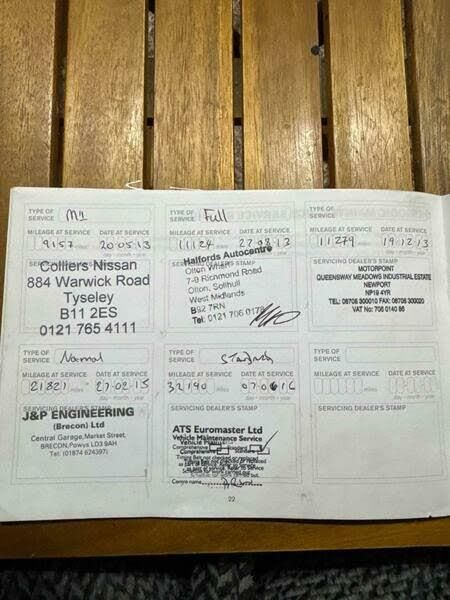 TYPE OF SERVICE M1
MILEAGE AT SERVICE DATE AT SERVICE
9157 miles 20 05 13
day - month - year
SERVICING DEALER'S STAMP
Colliers Nissan
884 Warwick Road
Tyseley
B11 2ES
0121 765 4111
TYPE OF SERVICE Full
MILEAGE AT SERVICE DATE AT SERVICE
11124 miles 27 08 13
SERVICING DEALER'S
Halfords Autocentre
Olton Wharf
7-9 Richmond Road
Olton, Solihull
West Midlands
B92 7RN
Tel: 0121 706 0178
TYPE OF SERVICE
MILEAGE AT SERVICE DATE AT SERVICE
11279 miles 19 12 13
day - month - year
SERVICING DEALER'S STAMP
MOTORPOINT
QUEENSWAY MEADOWS INDUSTRIAL ESTATE
NEWPORT
NP19 4YR
TEL: 08706 300010 FAX: 08706 300020
VAT No: 706 0140 86
TYPE OF SERVICE Normal
MILEAGE AT SERVICE DATE AT SERVICE
21821 miles 27 02 15
day - month - year
SERVICING DEALER'S STAMP
J&P ENGINEERING
(Brecon) Ltd
Central Garage, Market Street,
BRECON, Powys LD3 9AH
Tel: (01874 624397)
TYPE OF SERVICE Standard
MILEAGE AT SERVICE DATE AT SERVICE
32190 miles 07 06 16
day - month - year
SERVICING DEALER'S STAMP
ATS Euromaster Ltd
Vehicle Maintenance Service
Comprehensive Standard
Centre name
TYPE OF SERVICE
MILEAGE AT SERVICE DATE AT SERVICE
miles
day - month - year
SERVICING DEALER'S STAMP
22